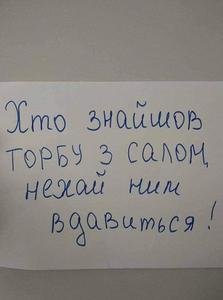 Хто знайшов
торбу з салом,
нехай ним
вдавиться!